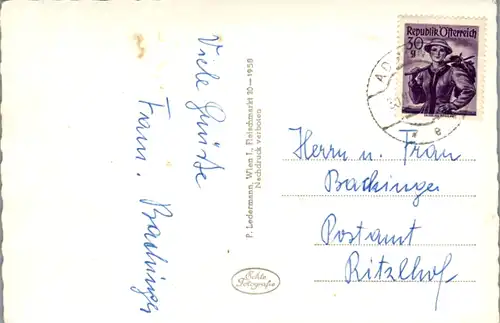 Viele Grüße
Fram. Bachinger
P. Ledermann, Wien I., Fleischmarkt 20 — 1958
Nachdruck verboten
Echte
Fotografie
Republik Österreich
30
g
AD
e
Herrn u. Frau
Bachinger
Postamt
Ritzlhof